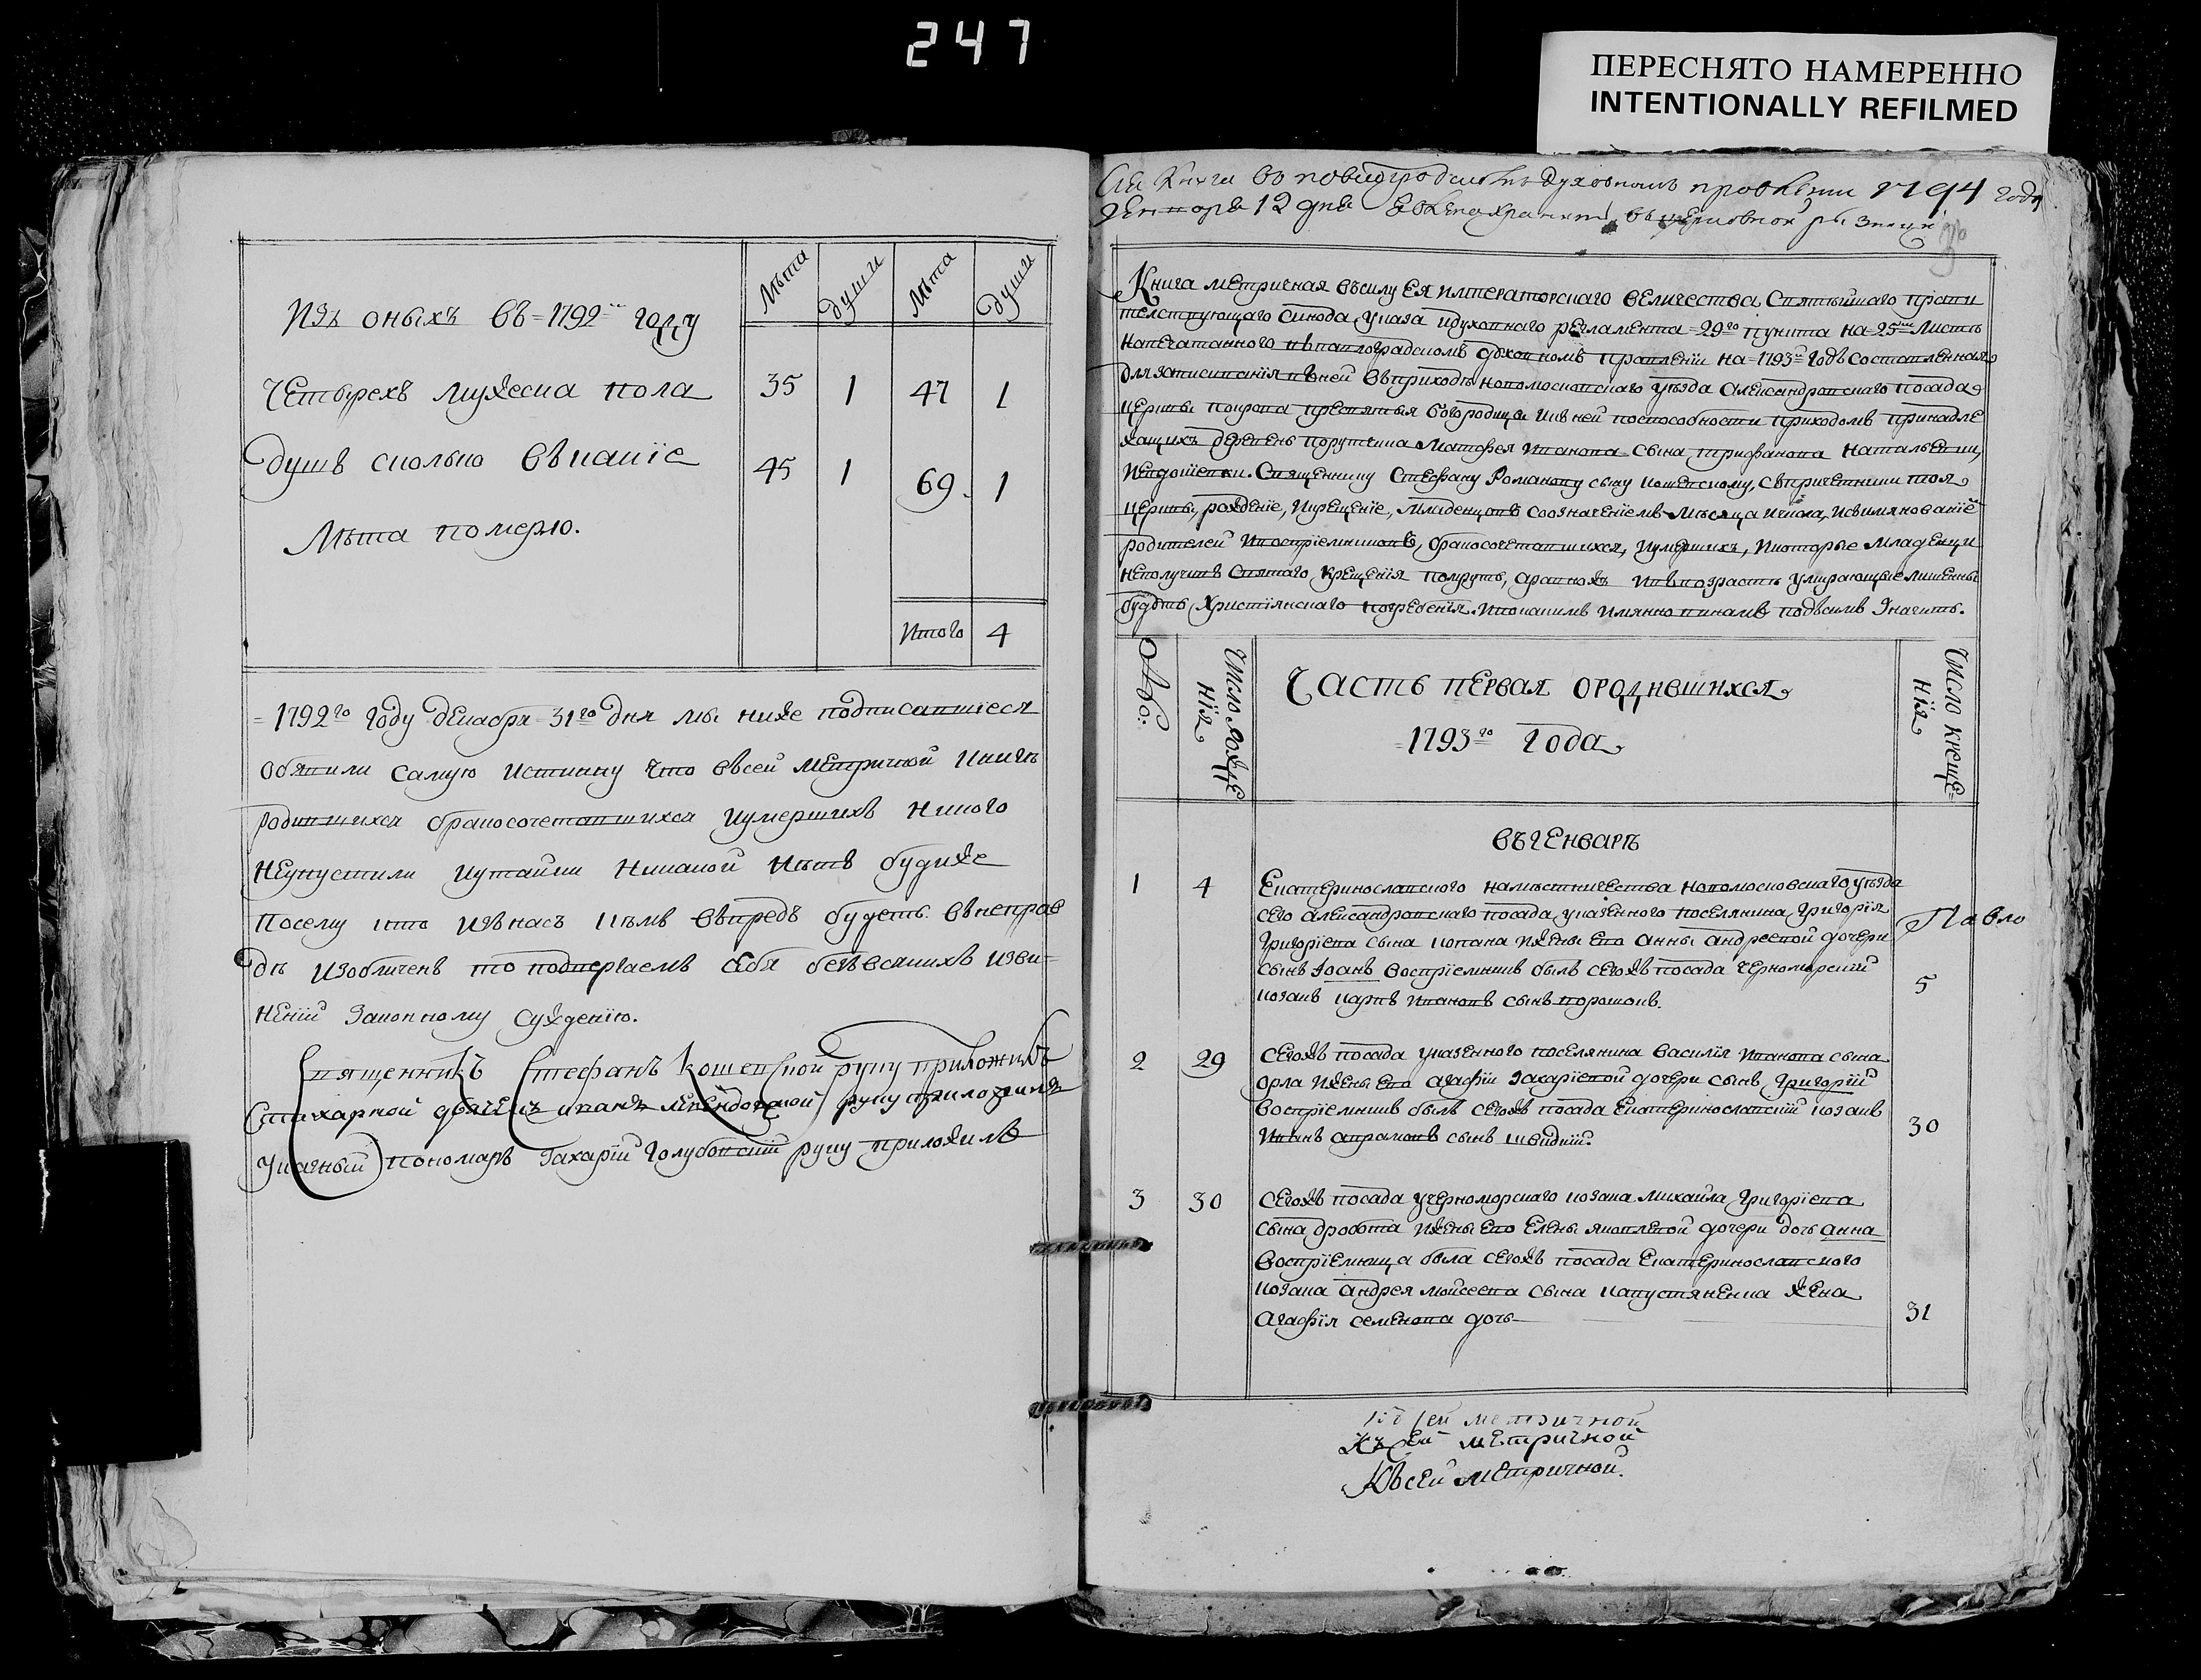 247
ПЕРЕСНЯТО НАМЕРЕННО
INTENTIONALLY REFILMED
Изъ оныхъ въ =1792мъ году
четырехъ мужеска пола
душъ сколько въ какïе
лѣта померло.
лѣта души лѣта души
35 1 47 1
45 1 69. 1
Итого 4
=1792го году декабря =31го дня мы ниже подписавшïеся
обявили самую истинну что въ сей метричной книгѣ
родившихся бракосочетавшихся и умершихъ никого
неупустили и утайки никакой нѣтъ буди же
посему кто изъ насъ и чѣмъ въпредь будетъ въ неправ
дѣ изобличенъ то подвергаемъ себя безъ всякихъ изви=
ненïй законному сужденïю.
Священникъ Стефанъ Кошевской руку приложилъ
Стихарной дьячекъ иванъ руку приложилъ
Указный пономарь Захарïй Голубовскïй руку приложилъ
Сïя Книга въ новомиргородскомъ Духовномъ 1794 года
12 дня въ церковной ризницы
Книга метричная въ силу ея императорскаго величества Святѣйшаго прави
телствующаго синода указа и духовнаго регламента =29го пункта на =25мъ листѣ
напечатанного въ духовномъ правленïи на =1793й годъ составленная
для записиванïя въ ней въ приходѣ новомосковскаго уѣзда александровскаго посада
церкви покрова пресвятыя богородицы и къ ней по способности приходомъ принадле
жащихъ деревень порутчика матфея иванова сына трифанова натальевки,
Священнику Стефану Романову сыну кошевскому, съ причетники тоя
церкви, рожденïе, и крещенïе, младенцовъ со означенïемъ мѣсяца и числа, и съ имянованïе
родителей и воспрïемниковъ, бракосочетавшихся, и умершихъ, и которые младенци
неполучивъ святаго крещенïя помрутъ, а равно жъ и въ возрастѣ умирающые лишены
будутъ христïянскаго погребенïя. и по какимъ имянно винамъ подъ симъ значитъ.
Число рожде
нïя
Часть первая о родившихся
=1793го года
Число креще=
нïя
въ генварѣ
1 4 Екатеринославского намѣстничества новомосковскаго уѣзда
сего александровскаго посада указенного поселянина григорïя
григорïева сына копана и жены его анны андреевой дочери
сынъ Іоанъ воспрïемникъ былъ сегожъ посада черноморскïй
козакъ карпъ ивановъ сынъ порошокъ.
Павло
5
2 29 Сегожъ посада указенного поселянина василïя иванова сына
орла и жены его агафïи захарïевой дочери сынъ григорïй
воспрïемникъ былъ сегожъ посада екатеринославскïй козакъ
иванъ аврамовъ сынъ швидкïй.
30
3 30 Сегожъ посада у черноморскаго козака михайла григорïева
сына дробота и жены его елены яковлевой дочери дочь анна
воспрïемница была сегожъ посада екатеринославского
козака андрея мойсеева сына капустяненка жена
агафïя семенова дочь
31
Къ сей метричной
Къ сей метричной
Къ сей метричной.